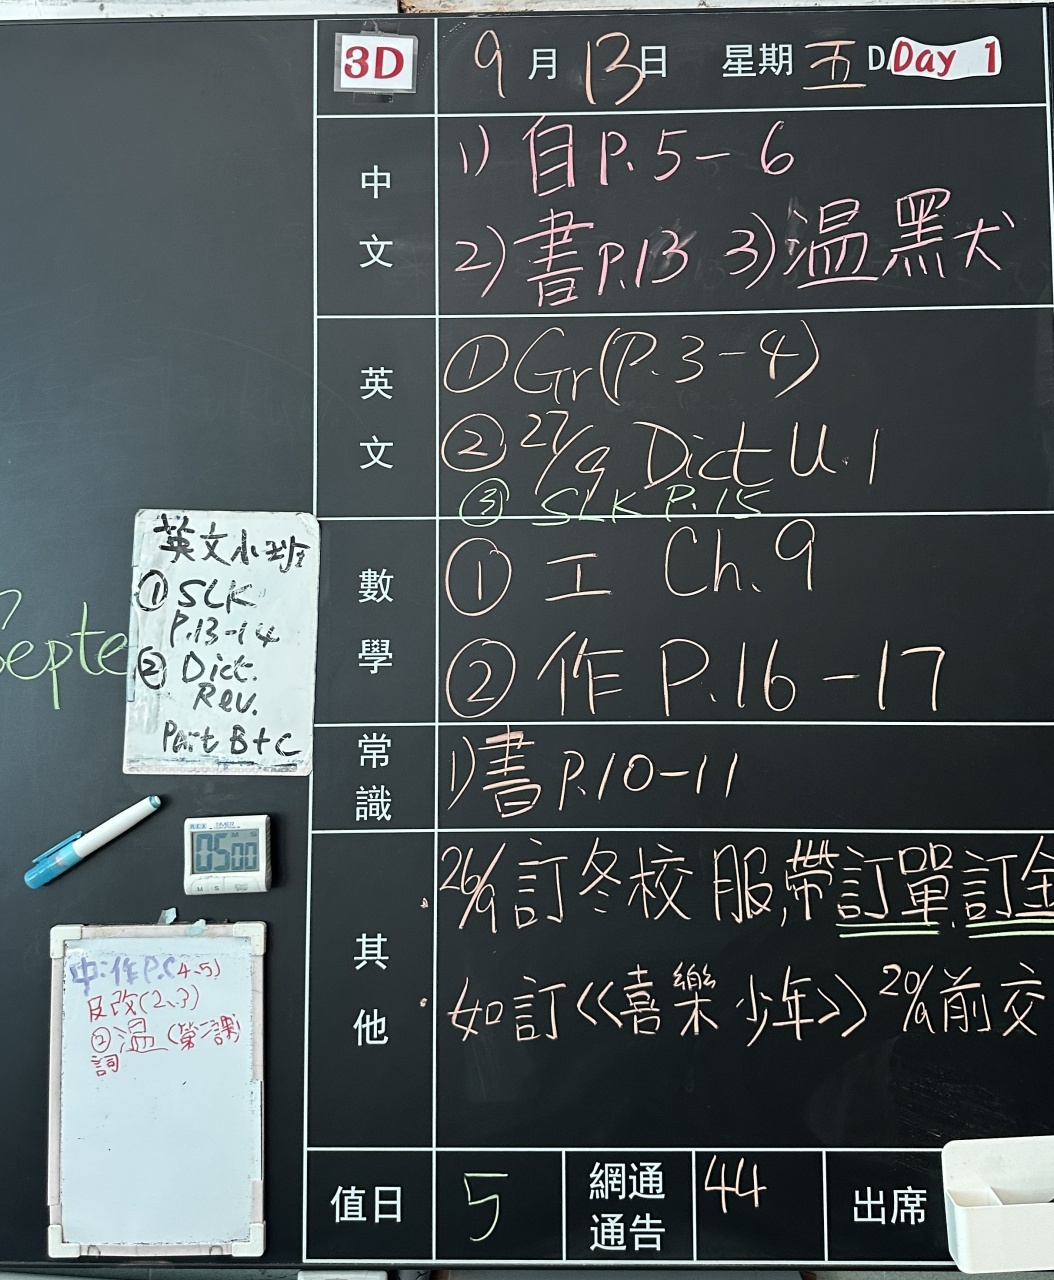 3D 9月13日 星期五 Day 1
中文
1) 自 P.5-6
2) 書 P.13 3) 温默犬
英文
① Gr (P.3-4)
② 27/9 Dict U.1
③ SLK P.15
數學
① 工 Ch.9
② 作 P.16-17
常識
1) 書 P.10-11
其他
26/9訂冬校服,帶訂單,訂金
如訂<<喜樂少年>> 20/9前交
值日 5 網通通告 44 出席
Septe
英文小班
① SLK
P.13-14
② Dict.
Rev.
Part B+C
TIMER
05 00
M S
中:作P.(4-5)
及改(2、3)
②温(第二課)
詞